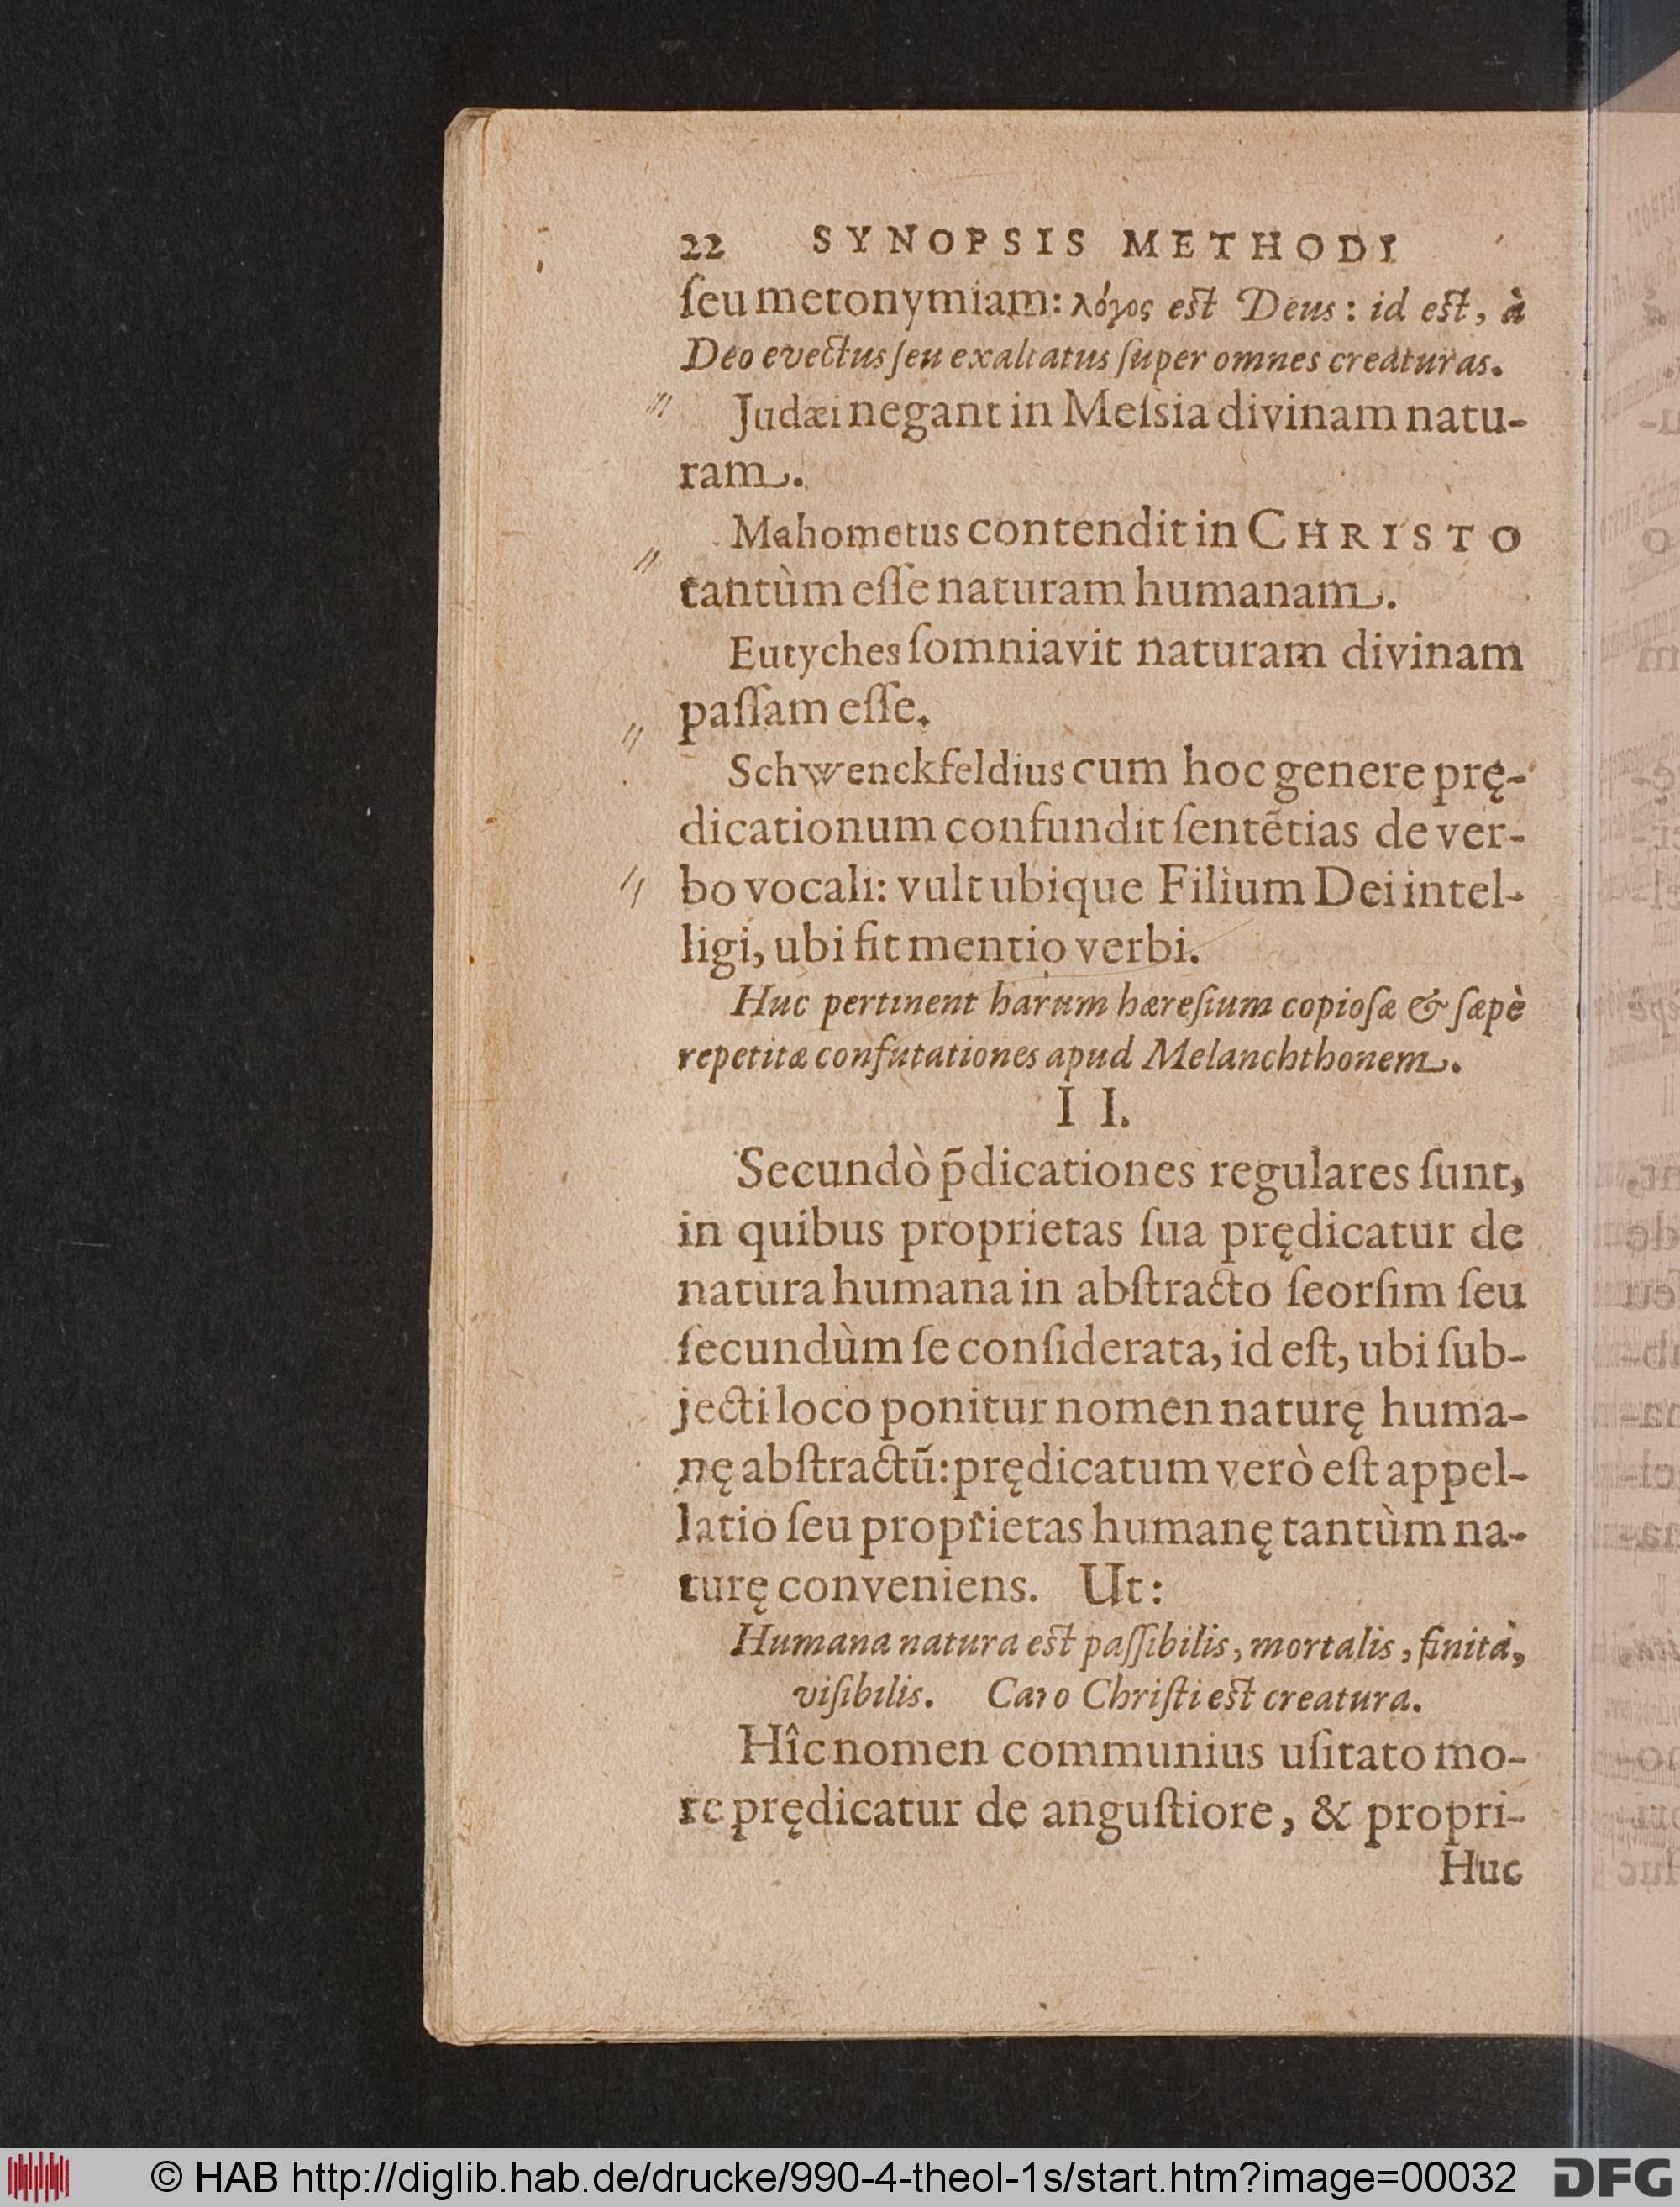 22 SYNOPSIS METHODI
ſeu metonymiam: λόγος est Deus: id est, à
Deo evectus ſeu exaltatus ſuper omnes creaturas.
Judæi negant in Meſsia divinam natu-
ram.
Mahometus contendit in CHRISTO
tantùm eſſe naturam humanam.
Eutyches ſomniavit naturam divinam
paſſam eſſe.
Schwenckfeldius cum hoc genere prę-
dicationum confundit ſentētias de ver-
bo vocali: vult ubique Filium Dei intel-
ligi, ubi fit mentio verbi.
Huc pertinent harum hæreſium copioſæ & ſæpè
repetitæ confutationes apud Melanchthonem.
II.
Secundò p̄dicationes regulares ſunt,
in quibus proprietas ſua prędicatur de
natura humana in abſtracto ſeorſim ſeu
ſecundùm ſe conſiderata, id eſt, ubi ſub-
jecti loco ponitur nomen naturę huma-
nę abſtractū: prędicatum verò eſt appel-
latio ſeu proprietas humanę tantùm na-
turę conveniens. Ut:
Humana natura est paſſibilis, mortalis, finita,
viſibilis. Caro Chriſti est creatura.
Hîc nomen communius uſitato mo-
re prędicatur de anguſtiore, & propri-
Huc
© HAB http://diglib.hab.de/drucke/990-4-theol-1s/start.htm?image=00032 DFG